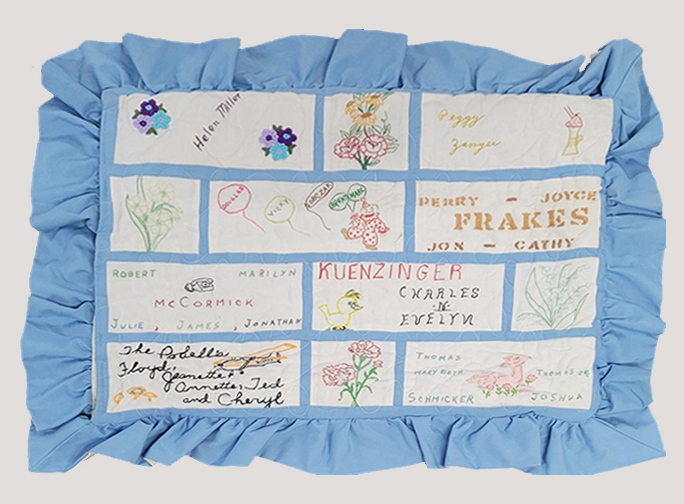 Helen Miller
Peggy
Zanger
DOUGLAS
VICKY
PERRY - JOYCE
FRAKES
JON - CATHY
ROBERT MARILYN
McCORMICK
JULIE, JAMES, JONATHAN
KUENZINGER
CHARLES
N
EVELYN
The Podells
Floyd, Jeanette
Annette, Ted
and Cheryl
THOMAS
MARY BETH THOMAS JR.
SCHMICKER JOSHUA